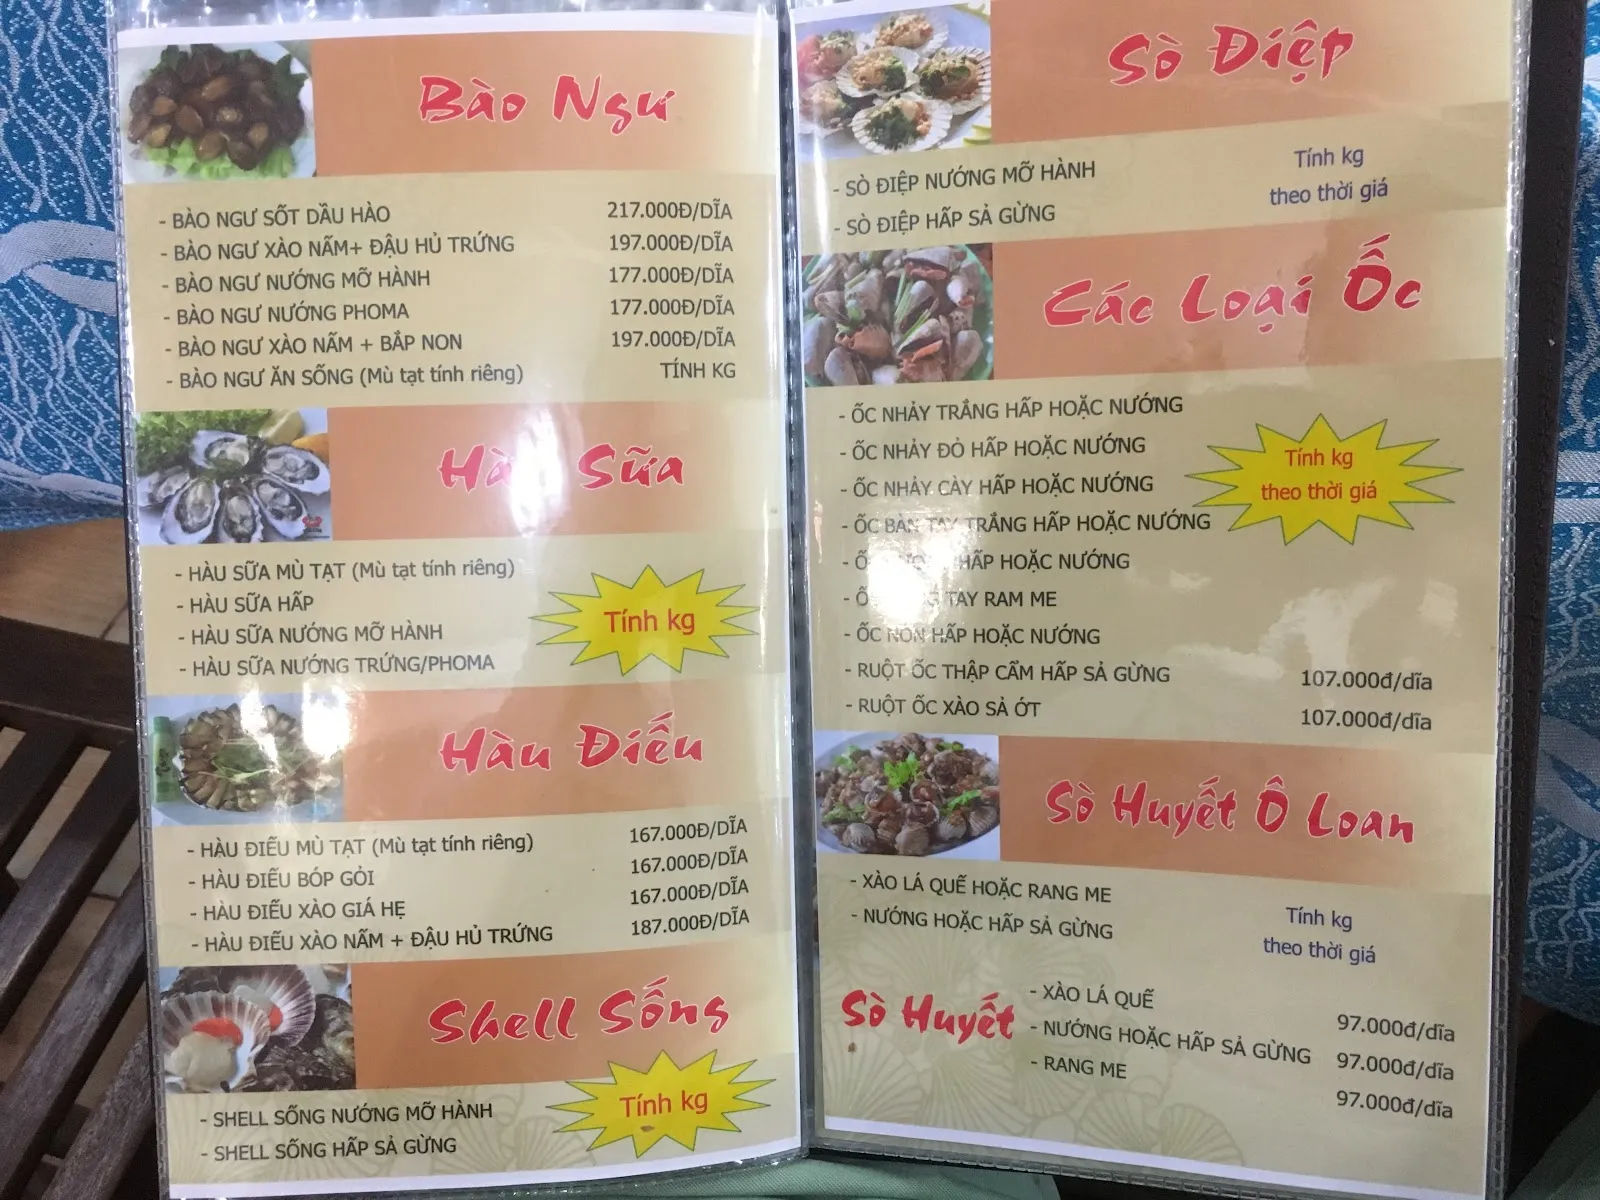 Bào Ngư
- BÀO NGƯ SỐT DẦU HÀO 217.000Đ/DĨA
- BÀO NGƯ XÀO NẤM+ ĐẬU HỦ TRỨNG 197.000Đ/DĨA
- BÀO NGƯ NƯỚNG MỠ HÀNH 177.000Đ/DĨA
- BÀO NGƯ NƯỚNG PHOMA 177.000Đ/DĨA
- BÀO NGƯ XÀO NẤM + BẮP NON 197.000Đ/DĨA
- BÀO NGƯ ĂN SỐNG (Mù tạt tính riêng) TÍNH KG
Hàu Sữa
- HÀU SỮA MÙ TẠT (Mù tạt tính riêng)
- HÀU SỮA HẤP
- HÀU SỮA NƯỚNG MỠ HÀNH
- HÀU SỮA NƯỚNG TRỨNG/PHOMA
Tính kg
Hàu Điếu
- HÀU ĐIẾU MÙ TẠT (Mù tạt tính riêng) 167.000Đ/DĨA
- HÀU ĐIẾU BÓP GỎI 167.000Đ/DĨA
- HÀU ĐIẾU XÀO GIÁ HẸ 167.000Đ/DĨA
- HÀU ĐIẾU XÀO NẤM + ĐẬU HỦ TRỨNG 187.000Đ/DĨA
Shell Sống
- SHELL SỐNG NƯỚNG MỠ HÀNH
- SHELL SỐNG HẤP SẢ GỪNG
Tính kg
Sò Điệp
- SÒ ĐIỆP NƯỚNG MỠ HÀNH
- SÒ ĐIỆP HẤP SẢ GỪNG
Tính kg
theo thời giá
Các Loại Ốc
- ỐC NHẢY TRẮNG HẤP HOẶC NƯỚNG
- ỐC NHẢY ĐỎ HẤP HOẶC NƯỚNG
- ỐC NHẢY CÀY HẤP HOẶC NƯỚNG
- ỐC BÀN TAY TRẮNG HẤP HOẶC NƯỚNG
- HẤP HOẶC NƯỚNG
- TAY RAM ME
- ỐC NÓN HẤP HOẶC NƯỚNG
Tính kg
theo thời giá
- RUỘT ỐC THẬP CẨM HẤP SẢ GỪNG 107.000đ/dĩa
- RUỘT ỐC XÀO SẢ ỚT 107.000đ/dĩa
Sò Huyết Ô Loan
- XÀO LÁ QUẾ HOẶC RANG ME
- NƯỚNG HOẶC HẤP SẢ GỪNG
Tính kg
theo thời giá
Sò Huyết
- XÀO LÁ QUẾ 97.000đ/dĩa
- NƯỚNG HOẶC HẤP SẢ GỪNG 97.000đ/dĩa
- RANG ME 97.000đ/dĩa